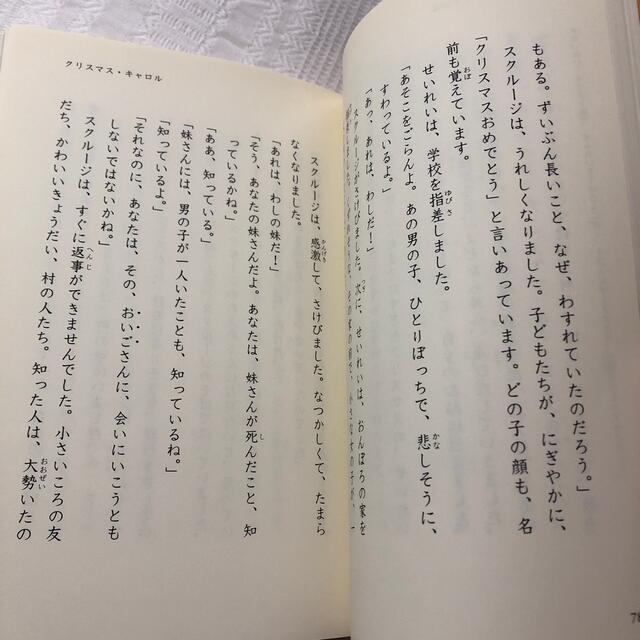 もある。ずいぶん長いこと、なぜ、わすれていたのだろう。」
スクルージは、うれしくなりました。子どもたちが、にぎやかに、
「クリスマスおめでとう」と言いあっています。どの子の顔も、名
前も覚えています。
せいれいは、学校を指差しました。
「あそこをごらんよ。あの男の子、ひとりぼっちで、悲しそうに、
すわっているよ。」
「あっ、あれは、わしだ！」
スクルージがさけびました。次に、せいれいは、おんぼろの家を
クリスマス・キャロル
スクルージは、感激して、さけびました。なつかしくて、たまら
なくなりました。
「あれは、わしの妹だ！」
「そう、あなたの妹さんだよ。あなたは、妹さんが死んだこと、知
っているかね。」
「ああ、知っている。」
「妹さんには、男の子が一人いたことも、知っているね。」
「知っているよ。」
「それなのに、あなたは、その、おいごさんに、会いにいこうとも
しないではないかね。」
スクルージは、すぐに返事ができませんでした。小さいころの友
だち、かわいいきょうだい、村の人たち。知った人は、大勢いたの